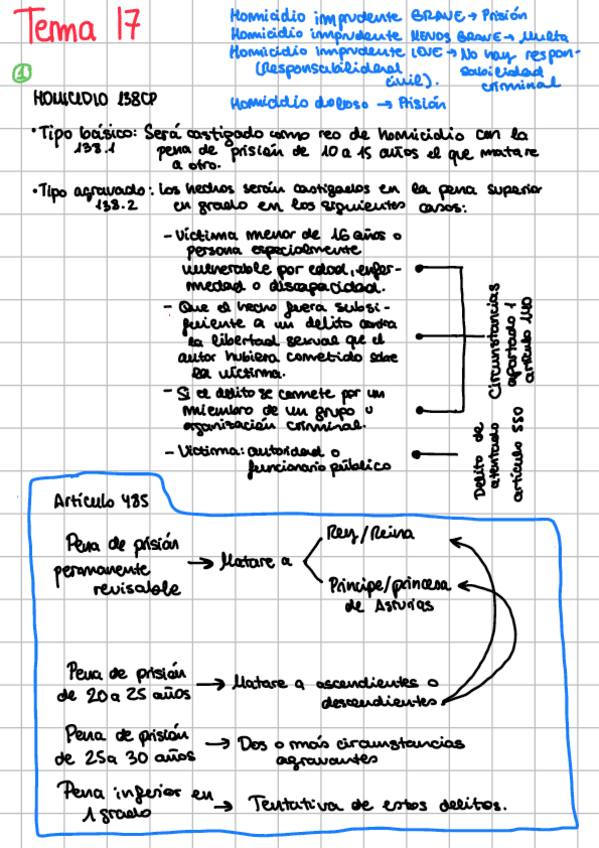 Tema 17
Homicidio imprudente GRAVE → Prisión
Homicidio imprudente MENOS GRAVE → Multa
Homicidio imprudente LEVE → No hay respon-
(Responsabilidad sabilidad
civil). criminal
Homicidio doloso → Prisión
1
HOMICIDIO 138CP
• Tipo básico: Será castigado como reo de homicidio con la
138.1 pena de prisión de 10 a 15 años el que matare
a otro.
• Tipo agravado: Los hechos serán castigados en la pena superior
138.2 en grado en los siguientes casos:
- Víctima menor de 16 años o
persona especialmente
vulnerable por edad, enfer-
medad o discapacidad.
- Que el hecho fuera subsi-
guiente a un delito contra
la libertad sexual que el
autor hubiera cometido sobre
la víctima.
- Si el delito se comete por un
miembro de un grupo u
organización criminal.
Circunstancias
apartado 1
artículo 140
- Víctima: autoridad o
funcionario público
Delito de
atentado
artículo 550
Artículo 485
Pena de prisión
permanente
revisable
→ Matare a
Rey/Reina
Príncipe/princesa
de Asturias
Pena de prisión
de 20 a 25 años
→ Matare a ascendientes o
descendientes.
Pena de prisión
de 25 a 30 años
→ Dos o más circunstancias
agravantes
Pena inferior en
1 grado
→ Tentativa de estos delitos.